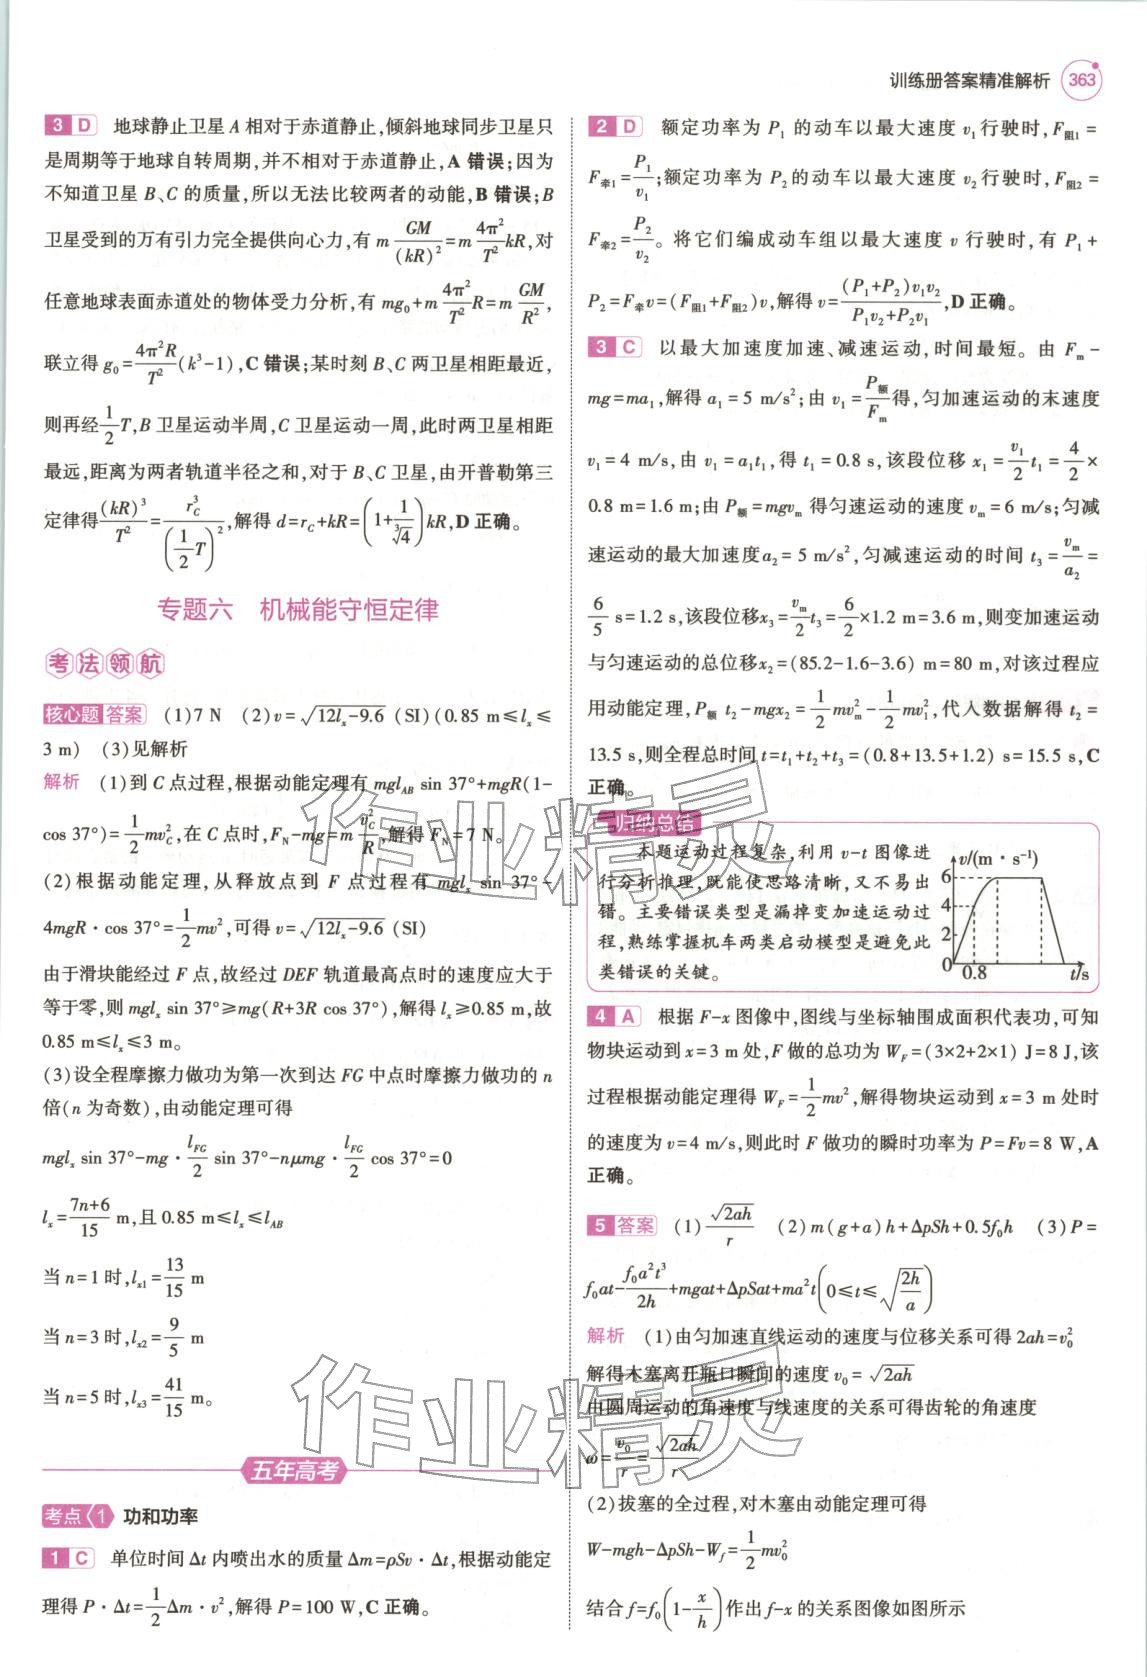 训练册答案精准解析 363
3 D 地球静止卫星 A 相对于赤道静止,倾斜地球同步卫星只
是周期等于地球自转周期,并不相对于赤道静止,A 错误;因为
不知道卫星 B、C 的质量,所以无法比较两者的动能,B 错误;B
卫星受到的万有引力完全提供向心力,有 m GM/(kR)² = m 4π²/T² kR,对
任意地球表面赤道处的物体受力分析,有 mg₀+m 4π²/T² R=m GM/R²,
联立得 g₀= 4π²R/T² (k³-1),C 错误;某时刻 B、C 两卫星相距最近,
则再经 1/2 T,B 卫星运动半周,C 卫星运动一周,此时两卫星相距
最远,距离为两者轨道半径之和,对于 B、C 卫星,由开普勒第三
定律得 (kR)³/T² = r_C³/(1/2 T)²,解得 d=r_C+kR=(1+1/∛4)kR,D 正确。
专题六 机械能守恒定律
考法领航
核心题 答案 (1)7 N (2)v=√(12lₓ-9.6) (SI)(0.85 m≤lₓ≤
3 m) (3)见解析
解析 (1)到 C 点过程,根据动能定理有 mgl_AB sin 37°+mgR(1-
cos 37°)= 1/2 mv_C²,在 C 点时,F_N-mg=m v_C²/R,解得 F_N=7 N。
(2)根据动能定理,从释放点到 F 点过程有 mglₓ sin 37°-
4mgR·cos 37°= 1/2 mv²,可得 v=√(12lₓ-9.6) (SI)
由于滑块能经过 F 点,故经过 DEF 轨道最高点时的速度应大于
等于零,则 mglₓ sin 37°≥mg(R+3R cos 37°),解得 lₓ≥0.85 m,故
0.85 m≤lₓ≤3 m。
(3)设全程摩擦力做功为第一次到达 FG 中点时摩擦力做功的 n
倍(n 为奇数),由动能定理可得
mglₓ sin 37°-mg· l_FG/2 sin 37°-nμmg· l_FG/2 cos 37°=0
lₓ= (7n+6)/15 m,且 0.85 m≤lₓ≤l_AB
当 n=1 时,lₓ₁= 13/15 m
当 n=3 时,lₓ₂= 9/5 m
当 n=5 时,lₓ₃= 41/15 m。
五年高考
考点 1 功和功率
1 C 单位时间 Δt 内喷出水的质量 Δm=ρSv·Δt,根据动能定
理得 P·Δt= 1/2 Δm·v²,解得 P=100 W,C 正确。
2 D 额定功率为 P₁ 的动车以最大速度 v₁ 行驶时,F阻₁=
F牵₁= P₁/v₁;额定功率为 P₂ 的动车以最大速度 v₂ 行驶时,F阻₂=
F牵₂= P₂/v₂。将它们编成动车组以最大速度 v 行驶时,有 P₁+
P₂=F牵v=(F阻₁+F阻₂)v,解得 v= (P₁+P₂)v₁v₂/(P₁v₂+P₂v₁),D 正确。
3 C 以最大加速度加速、减速运动,时间最短。由 Fₘ-
mg=ma₁,解得 a₁=5 m/s²;由 v₁= P额/Fₘ 得,匀加速运动的末速度
v₁=4 m/s,由 v₁=a₁t₁,得 t₁=0.8 s,该段位移 x₁= v₁/2 t₁= 4/2 ×
0.8 m=1.6 m;由 P额=mgvₘ 得匀速运动的速度 vₘ=6 m/s;匀减
速运动的最大加速度 a₂=5 m/s²,匀减速运动的时间 t₃= vₘ/a₂ =
6/5 s=1.2 s,该段位移 x₃= vₘ/2 t₃= 6/2 ×1.2 m=3.6 m,则变加速运动
与匀速运动的总位移 x₂=(85.2-1.6-3.6) m=80 m,对该过程应
用动能定理,P额 t₂-mgx₂= 1/2 mvₘ²- 1/2 mv₁²,代入数据解得 t₂=
13.5 s,则全程总时间 t=t₁+t₂+t₃=(0.8+13.5+1.2) s=15.5 s,C
正确。
归纳总结
本题运动过程复杂,利用 v-t 图像进
行分析推理,既能使思路清晰,又不易出
错。主要错误类型是漏掉变加速运动过
程,熟练掌握机车两类启动模型是避免此
类错误的关键。
v/(m·s⁻¹)
6
4
2
0 0.8 t/s
4 A 根据 F-x 图像中,图线与坐标轴围成面积代表功,可知
物块运动到 x=3 m 处,F 做的总功为 W_F=(3×2+2×1) J=8 J,该
过程根据动能定理得 W_F= 1/2 mv²,解得物块运动到 x=3 m 处时
的速度为 v=4 m/s,则此时 F 做功的瞬时功率为 P=Fv=8 W,A
正确。
5 答案 (1) √(2ah)/r (2)m(g+a)h+ΔpSh+0.5f₀h (3)P=
f₀at- f₀a²t³/2h +mgat+ΔpSat+ma²t(0≤t≤√(2h/a))
解析 (1)由匀加速直线运动的速度与位移关系可得 2ah=v₀²
解得木塞离开瓶口瞬间的速度 v₀=√(2ah)
由圆周运动的角速度与线速度的关系可得齿轮的角速度
ω= v₀/r = √(2ah)/r
(2)拔塞的全过程,对木塞由动能定理可得
W-mgh-ΔpSh-W_f= 1/2 mv₀²
结合 f=f₀(1- x/h)作出 f-x 的关系图像如图所示
作业精灵
作业精灵